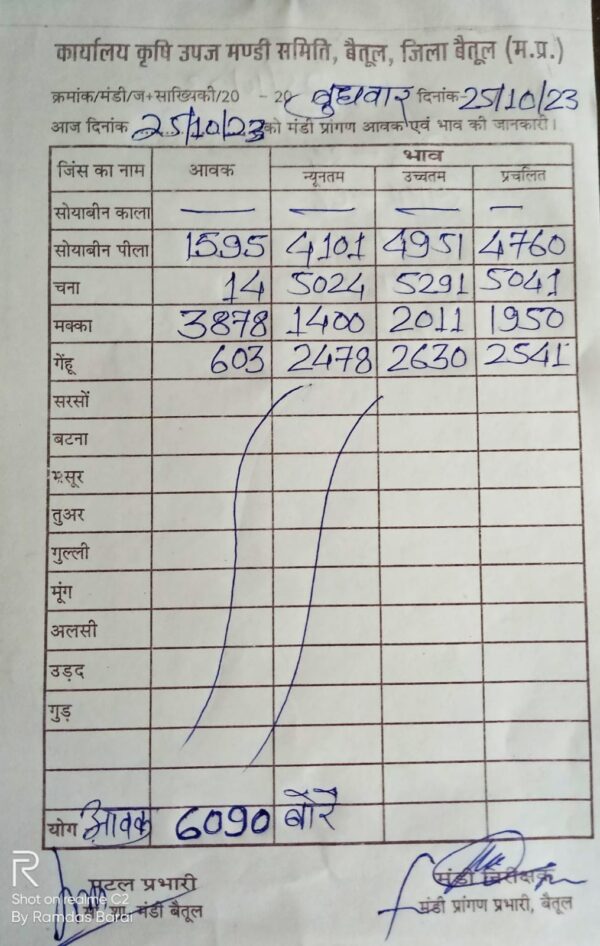 कार्यालय कृषि उपज मण्डी समिति, बैतूल, जिला बैतूल (म.प्र.)
क्रमांक/मंडी/ज+साख्यिकी/20 - 20 बुधवार दिनांक-25/10/23
आज दिनांक 25/10/23 को मंडी प्रांगण आवक एवं भाव की जानकारी।
जिंस का नाम आवक भाव
न्यूनतम उच्चतम प्रचलित
सोयाबीन काला — — — —
सोयाबीन पीला 1595 4101 4951 4760
चना 14 5024 5291 5041
मक्का 3878 1400 2011 1950
गेंहू 603 2478 2630 2541
सरसों
बटना
मसूर
तुअर
गुल्ली
मूंग
अलसी
उड़द
गुड़
योग आवक 6090 बोरे
पटल प्रभारी मंडी निरीक्षक
शा. मंडी बैतूल मंडी प्रांगण प्रभारी, बैतूल
R
Shot on realme C2
By Ramdas Barai